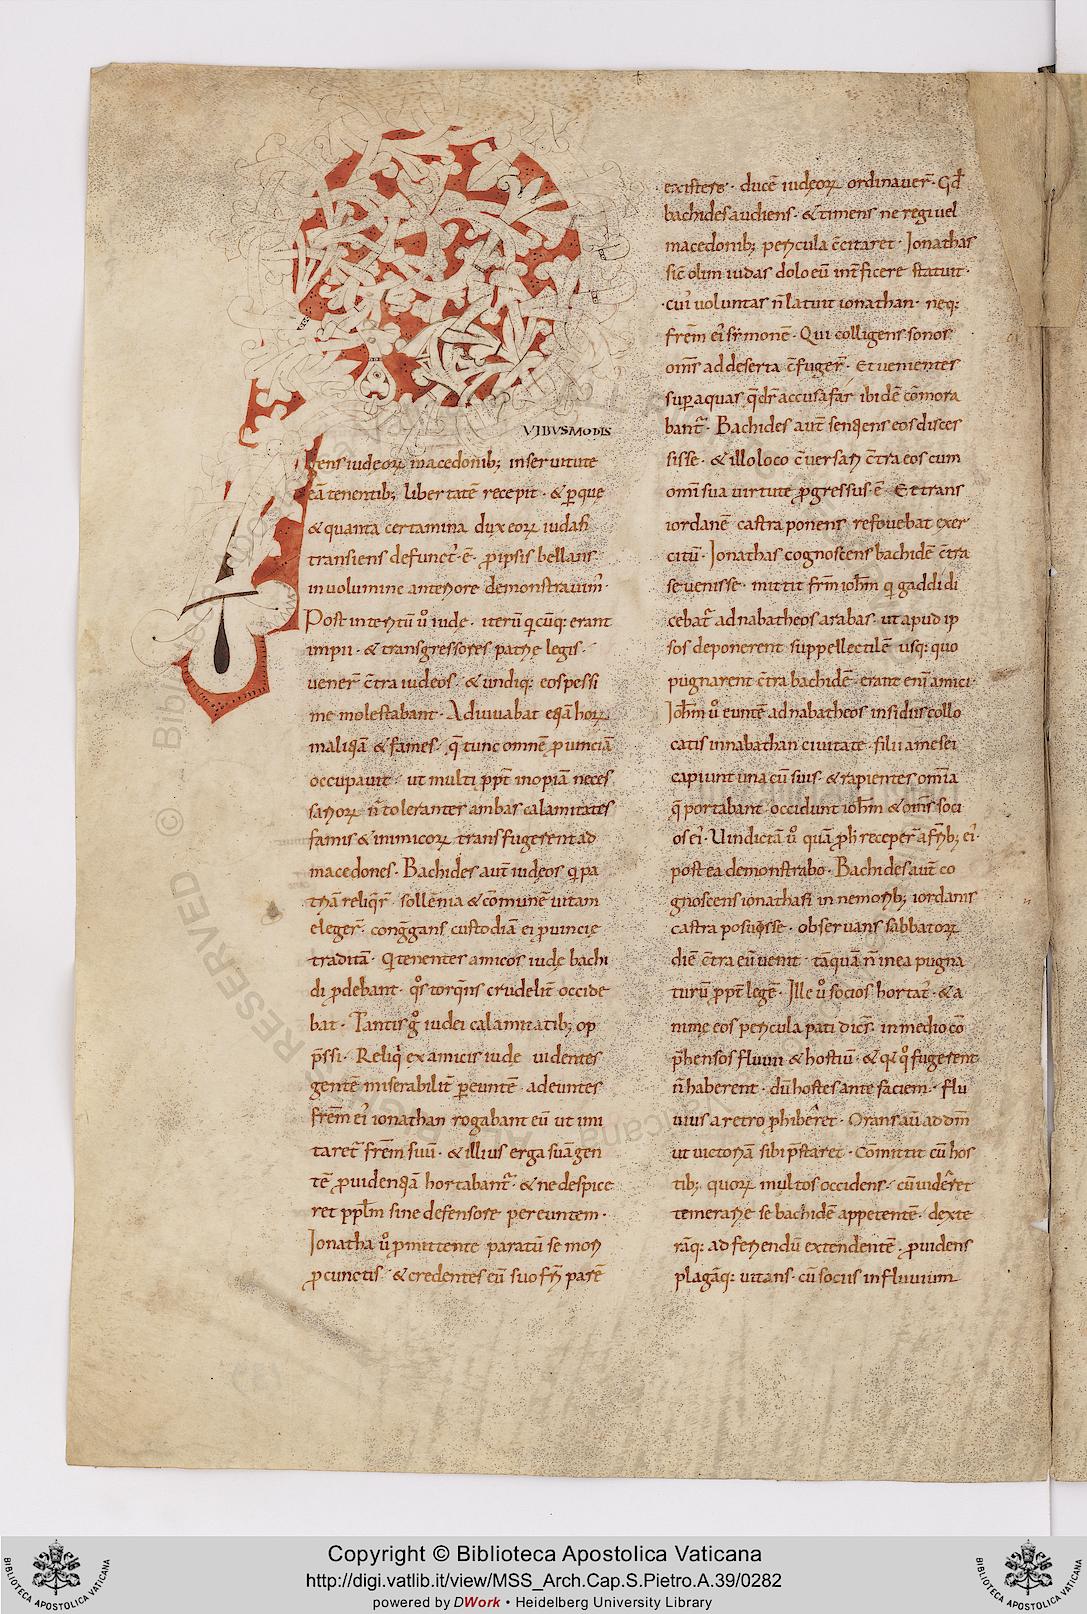 VIBVSMODIS
gens iudeoꝝ macedonib; inseruitute
eā tenentib; libertatē recepit · & p̱que
& quanta certamina dux eoꝝ iudas
transiens defunct᷒ · ē · ꝓipsis bellans
inuolumine anteriore demonstrauim᷒ ·
Post interitū ů iudę · iterū q̇cūq: erant
impii · & transgressores patrię legis ·
uener̄ c̄tra iudeos · & undiq: eos pessi
me molestabant · Adiuuabat eq̄ā horꝝ
maliq̄ā & fames · q̄ tunc omnē ꝓuinciā
occupauit · ut multi ꝓpt̄ inopiā neces
sarioꝝ n̄ tolerantes ambas calamitates
famis & inimicoꝝ transfugerent ad
macedones · Bachides aut̄ iudeos q̇ pa
triā reliqr̄ · sollēnia & cōmunē uitam
eleger̄ · congg̃ans custodiā ei ꝓuincię
traditā · Qi tenentes amicos iudę bachi
di ꝓdebant · q̊s torq̄ns crudelit̄ occide
bat · Tantis g̊ iudei calamitatib; op
p̄ssi · Reliq̇ ex amicis iude uidentes
gentē miserabilit̄ p̱euntē · adeuntes
frēm ei᷒ ionathan rogabant eū ut imi
taret᷑ frēm suū · & illius erga suā gen
tē ꝓuidenq̄ā hortabant᷑ · & ne despice
ret pp̄lm sine defensore pereuntem ·
Jonatha ů ꝓmittente paratū se mori
ꝓcunctis · & credentes eū suo fri parē
existere · ducē iudęoꝝ ordinauer̄ · Qd̄
bachides audiens · & timens ne regi uel
macedonib; pericula c̄citaret · Jonathas
sic̄ olim iudas dolo eū int̄ficere statuit ·
cui᷒ uoluntas n̄ latuit ionathan · neq:
frēm ei᷒ symonē · Qui colligens sonos
om̄s ad deserta c̄fuger̄ · Et uenientes
sup̱ aquas q̄ dr̄ accusafar ibidē cōmora
bant᷑ · Bachides aut̄ senq̄ens eos disces
sisse · & illo loco c̄uersari c̄tra eos cum
omni sua uirtute ꝓgressus · ē · Et trans
iordanē castra ponens refouebat exer
citū · Jonathas cognoscens bachidē c̄tra
se uenisse · mittit frm̄ ioh̄m q̇ gaddi di
cebat᷑ ad nabatheos arabas · ut apud ip
sos deponerent suppellectilē usq: quo
pugnarent c̄tra bachidē · erant eni᷒ amici ·
Joh̄m ů euntē ad nabatheos insidiis collo
catis in nabathan ciuitate · filii amesei
capiunt una cū suis · & rapientes omīa
q̄ portabant · occidunt ioh̄m & om̄s soci
os ei᷒ · Uindictā ů quā ꝓ h̄ receper̄ a frib; ei᷒
post ea demonstrabo · Bachides aut̄ co
gnoscens ionathan in nemorib; iordanis
castra posuisse · obseruans sabbatoꝝ
diē c̄tra eū uenit · tāquā n̄ in ea pugna
turū ꝓpt̄ legē · Ille ů socios hortat᷑ · & a
nimę eos pericula pati dicēs · in medio cō
p̄hensos fluuii & hostiū · & q̇a q̊ fugerent
n̄ haberent · dū hostes ante faciem · flu
uius a retro ꝓhiberet · Orans aū ad dm̄
ut uictoriā sibi p̄staret · Cōmittit cū hos
tib; quoꝝ multos occidens · cū uideret
temerarie se bachidē appetentē · dexte
rāq: ad feriendū extendentē · ꝓuidens
plagāq: uitans · cū sociis in fluuium
Copyright © Biblioteca Apostolica Vaticana
http://digi.vatlib.it/view/MSS_Arch.Cap.S.Pietro.A.39/0282
powered by DWork • Heidelberg University Library
BIBLIOTECA APOSTOLICA VATICANA
BIBLIOTECA APOSTOLICA VATICANA